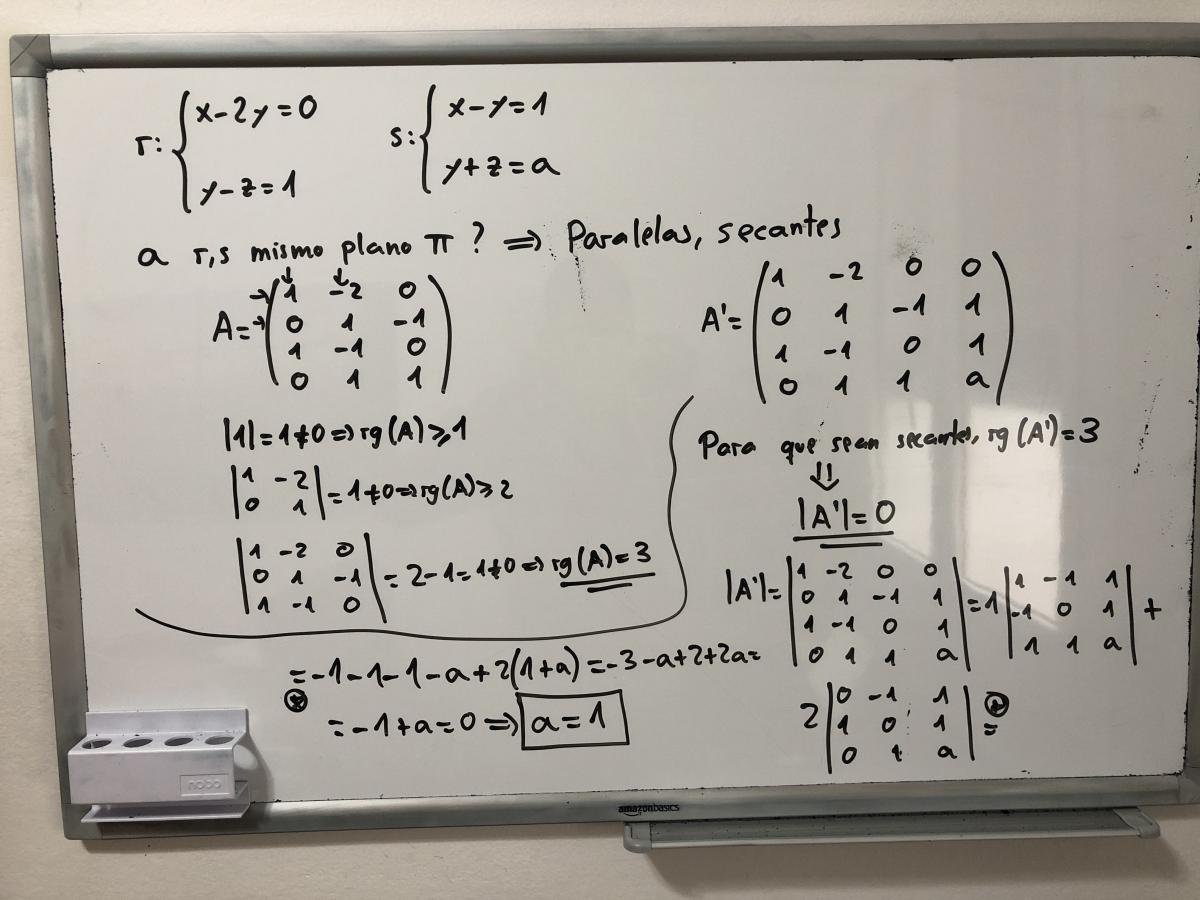 r: { x-2y=0
y-z=1
s: { x-y=1
y+z=a
a r,s mismo plano π ? ⇒ Paralelas, secantes
A= ( 1 -2 0
0 1 -1
1 -1 0
0 1 1 )
|1|=1≠0⇒rg(A)≥1
| 1 -2
0 1 | =1≠0⇒rg(A)≥2
| 1 -2 0
0 1 -1
1 -1 0 | =2-1=1≠0⇒rg(A)=3
A'= ( 1 -2 0 0
0 1 -1 1
1 -1 0 1
0 1 1 a )
Para que sean secantes, rg(A')=3
⇓
|A'|=0
|A'|= | 1 -2 0 0
0 1 -1 1
1 -1 0 1
0 1 1 a | =1 | 1 -1 1
-1 0 1
1 1 a | +
2 | 0 -1 1
1 0 1
0 1 a | ⊛=
⊛ =-1-1-1-a+2(1+a)=-3-a+2+2a=
=-1+a=0⇒ a=1
nobo
amazonbasics